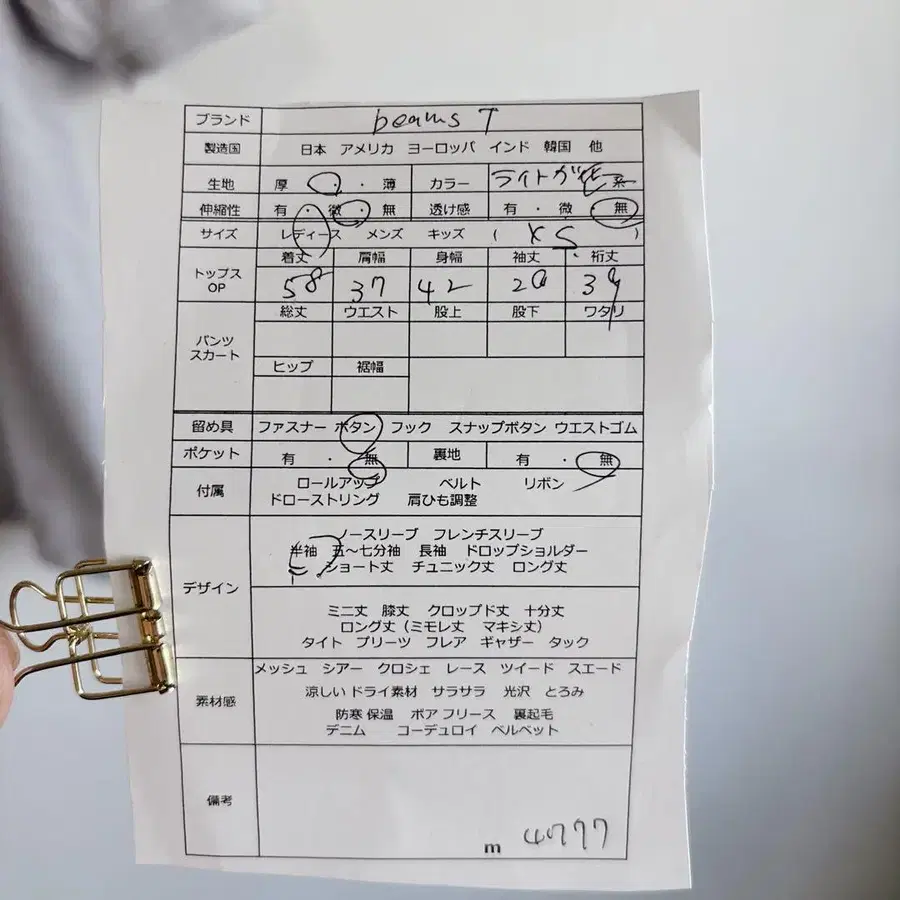 ブランド beams T
製造国 日本 アメリカ ヨーロッパ インド 韓国 他
生地 厚 ・ 薄 カラー ライト 系
伸縮性 有 ・ 微 ・ 無 透け感 有 ・ 微 ・ 無
サイズ レディース メンズ キッズ ( XS )
トップス OP 着丈 肩幅 身幅 袖丈 ・ 裄丈
58 37 42 20 39
パンツ スカート 総丈 ウエスト 股上 股下 ワタリ
ヒップ 裾幅
留め具 ファスナー ボタン フック スナップボタン ウエストゴム
ポケット 有 ・ 無 裏地 有 ・ 無
付属 ロールアップ ベルト リボン
ドローストリング 肩ひも調整
デザイン
ノースリーブ フレンチスリーブ
半袖 五〜七分袖 長袖 ドロップショルダー
ショート丈 チュニック丈 ロング丈
ミニ丈 膝丈 クロップド丈 十分丈
ロング丈（ミモレ丈 マキシ丈）
タイト プリーツ フレア ギャザー タック
素材感
メッシュ シアー クロシェ レース ツイード スエード
涼しい ドライ素材 サラサラ 光沢 とろみ
防寒 保温 ボア フリース 裏起毛
デニム コーデュロイ ベルベット
備考
m 40777